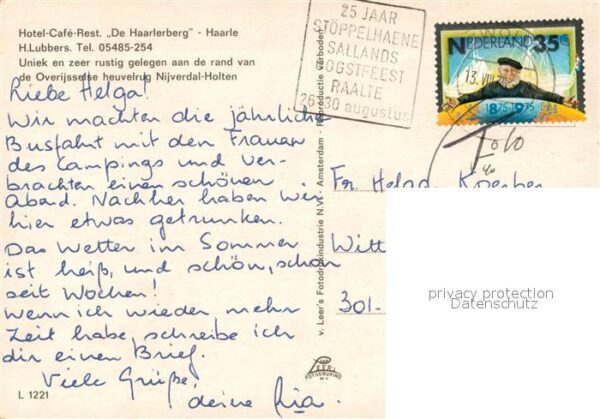 Hotel-Café-Rest. „De Haarlerberg" - Haarle
H.Lubbers. Tel. 05485-254
Uniek en zeer rustig gelegen aan de rand van
de Overijsselse heuvelrug Nijverdal-Holten
Liebe Helga!
Wir machten die jährliche
Busfahrt mit den Frauen
des Campings und ver-
brachten einen schönen
Abend. Nachher haben wir
hier etwas getrunken.
Das Wetter im Sommer
ist heiß, und schön, schon
seit Wochen!
Wenn ich wieder mehr
Zeit habe, schreibe ich
dir einen Brief.
Viele Grüße,
deine Ria.
L 1221
v. Leer's Fotodrukindustrie N.V. - Amsterdam - Reproductie verboden
LEER'S
FOTODRUKIND
N.V.
25 JAAR
STÖPPELHAENE
SALLANDS
OOGSTFEEST
RAALTE
26-30 augustus
NEDERLAND 35c
1875 1975
13. VIII
Fr. Helga Koerber
Witt
301-
privacy protection
Datenschutz